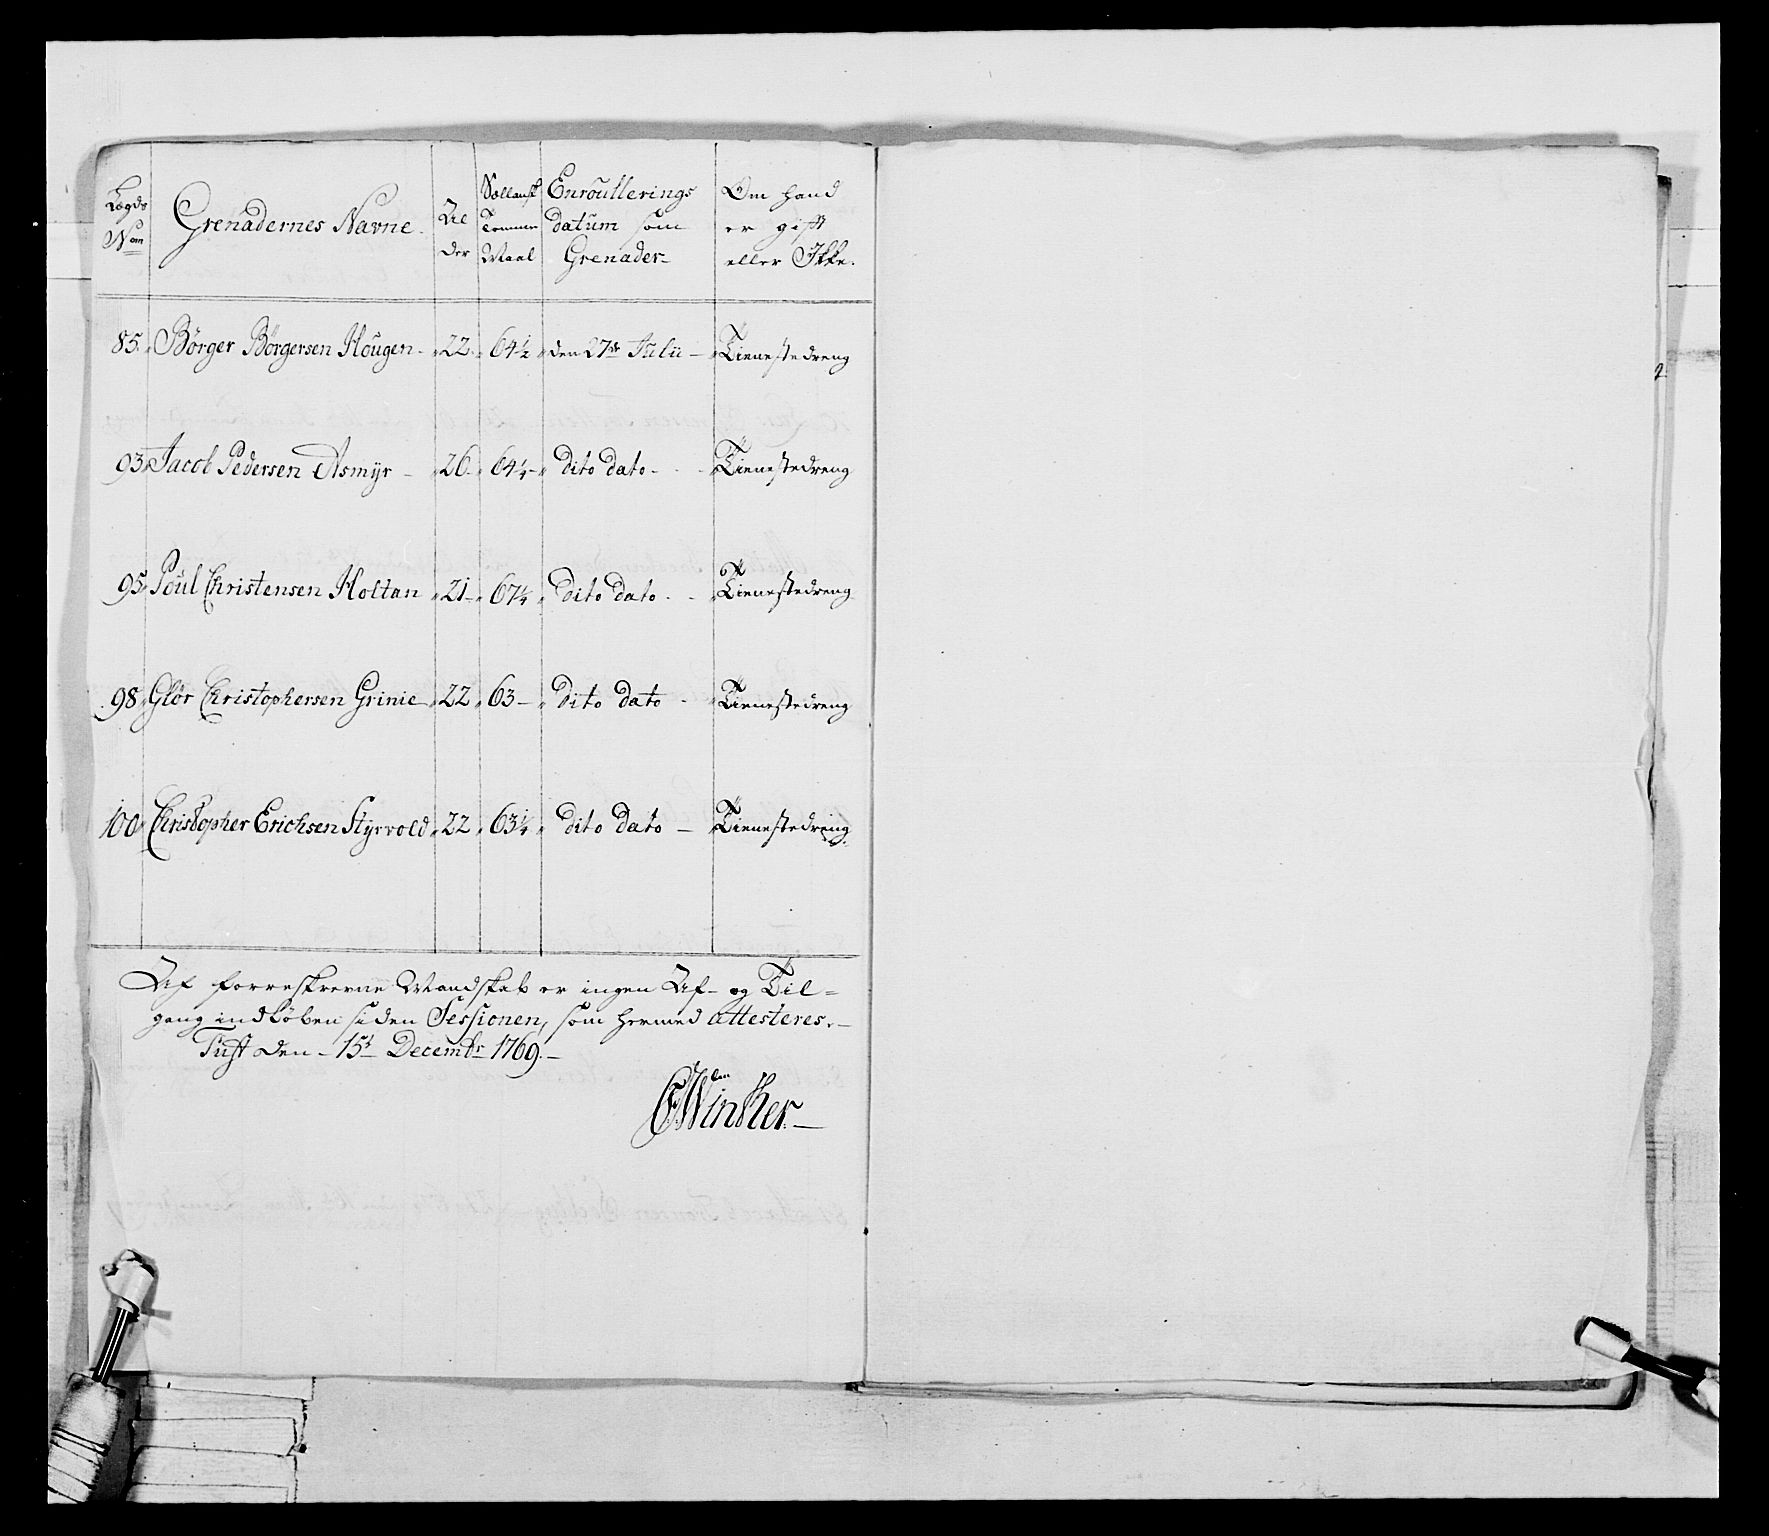 Lægds Nom | Grenadernes Navne. | Al der | Sællansk Tommer Maal | Enroullerings datum som Grenader | Om hand er gift eller Ikke.
85. Börger Börgersen Hougen - 22. 64½ den 27de Julii - Tienestedreng
93. Jacob Pedersen Asmÿr - 26. 64¼ Dito dato - Tienestedreng
95. Poul Christensen Holtan 21 - 67¼ Dito dato - Tienestedreng
98. Glör Christophersen Grinie 22 63 - Dito dato - Tienestedreng
100. Christopher Erichsen Styrvold 22 63¼ Dito Dato - Tienestedreng.
Af forreskrevne Mandskab er ingen Af- og Til=
gang indløben siden Sessionen, som hermed attesteres. -
Tuft den - 15t Decembr 1769. -
Winther. -